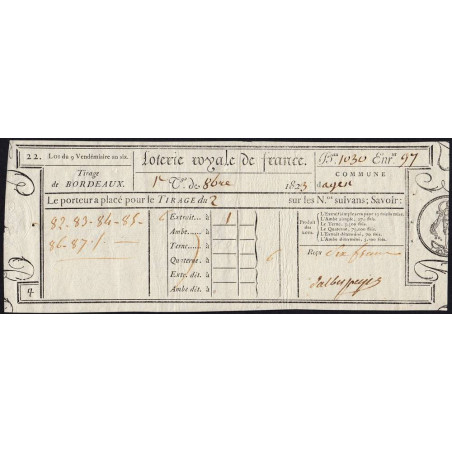 22. Loi du 9 Vendémiaire an six.
Loterie royale de france.
Bau 1030 Enr.t 97
Tirage
de BORDEAUX.
1er T. de 8bre 1823
COMMUNE
d'agen
Le porteur a placé pour le TIRAGE du 2 sur les N.os suivans; Savoir:
82-83-84-85-
86-87./.
Extrait.. à 1
Ambe.... à
Terne.... à
Quaterne. à
Extr. dét. à
Ambe dét. à
Produit
des
Lots.
L'Extrait simple
L'Ambe simple, 270 fois.
Le Terne, 5,500 fois.
Le Quaterne, 75,000 fois.
L'Extrait déterminé, 70 fois.
L'Ambe déterminé, 5,100 fois.
Reçu